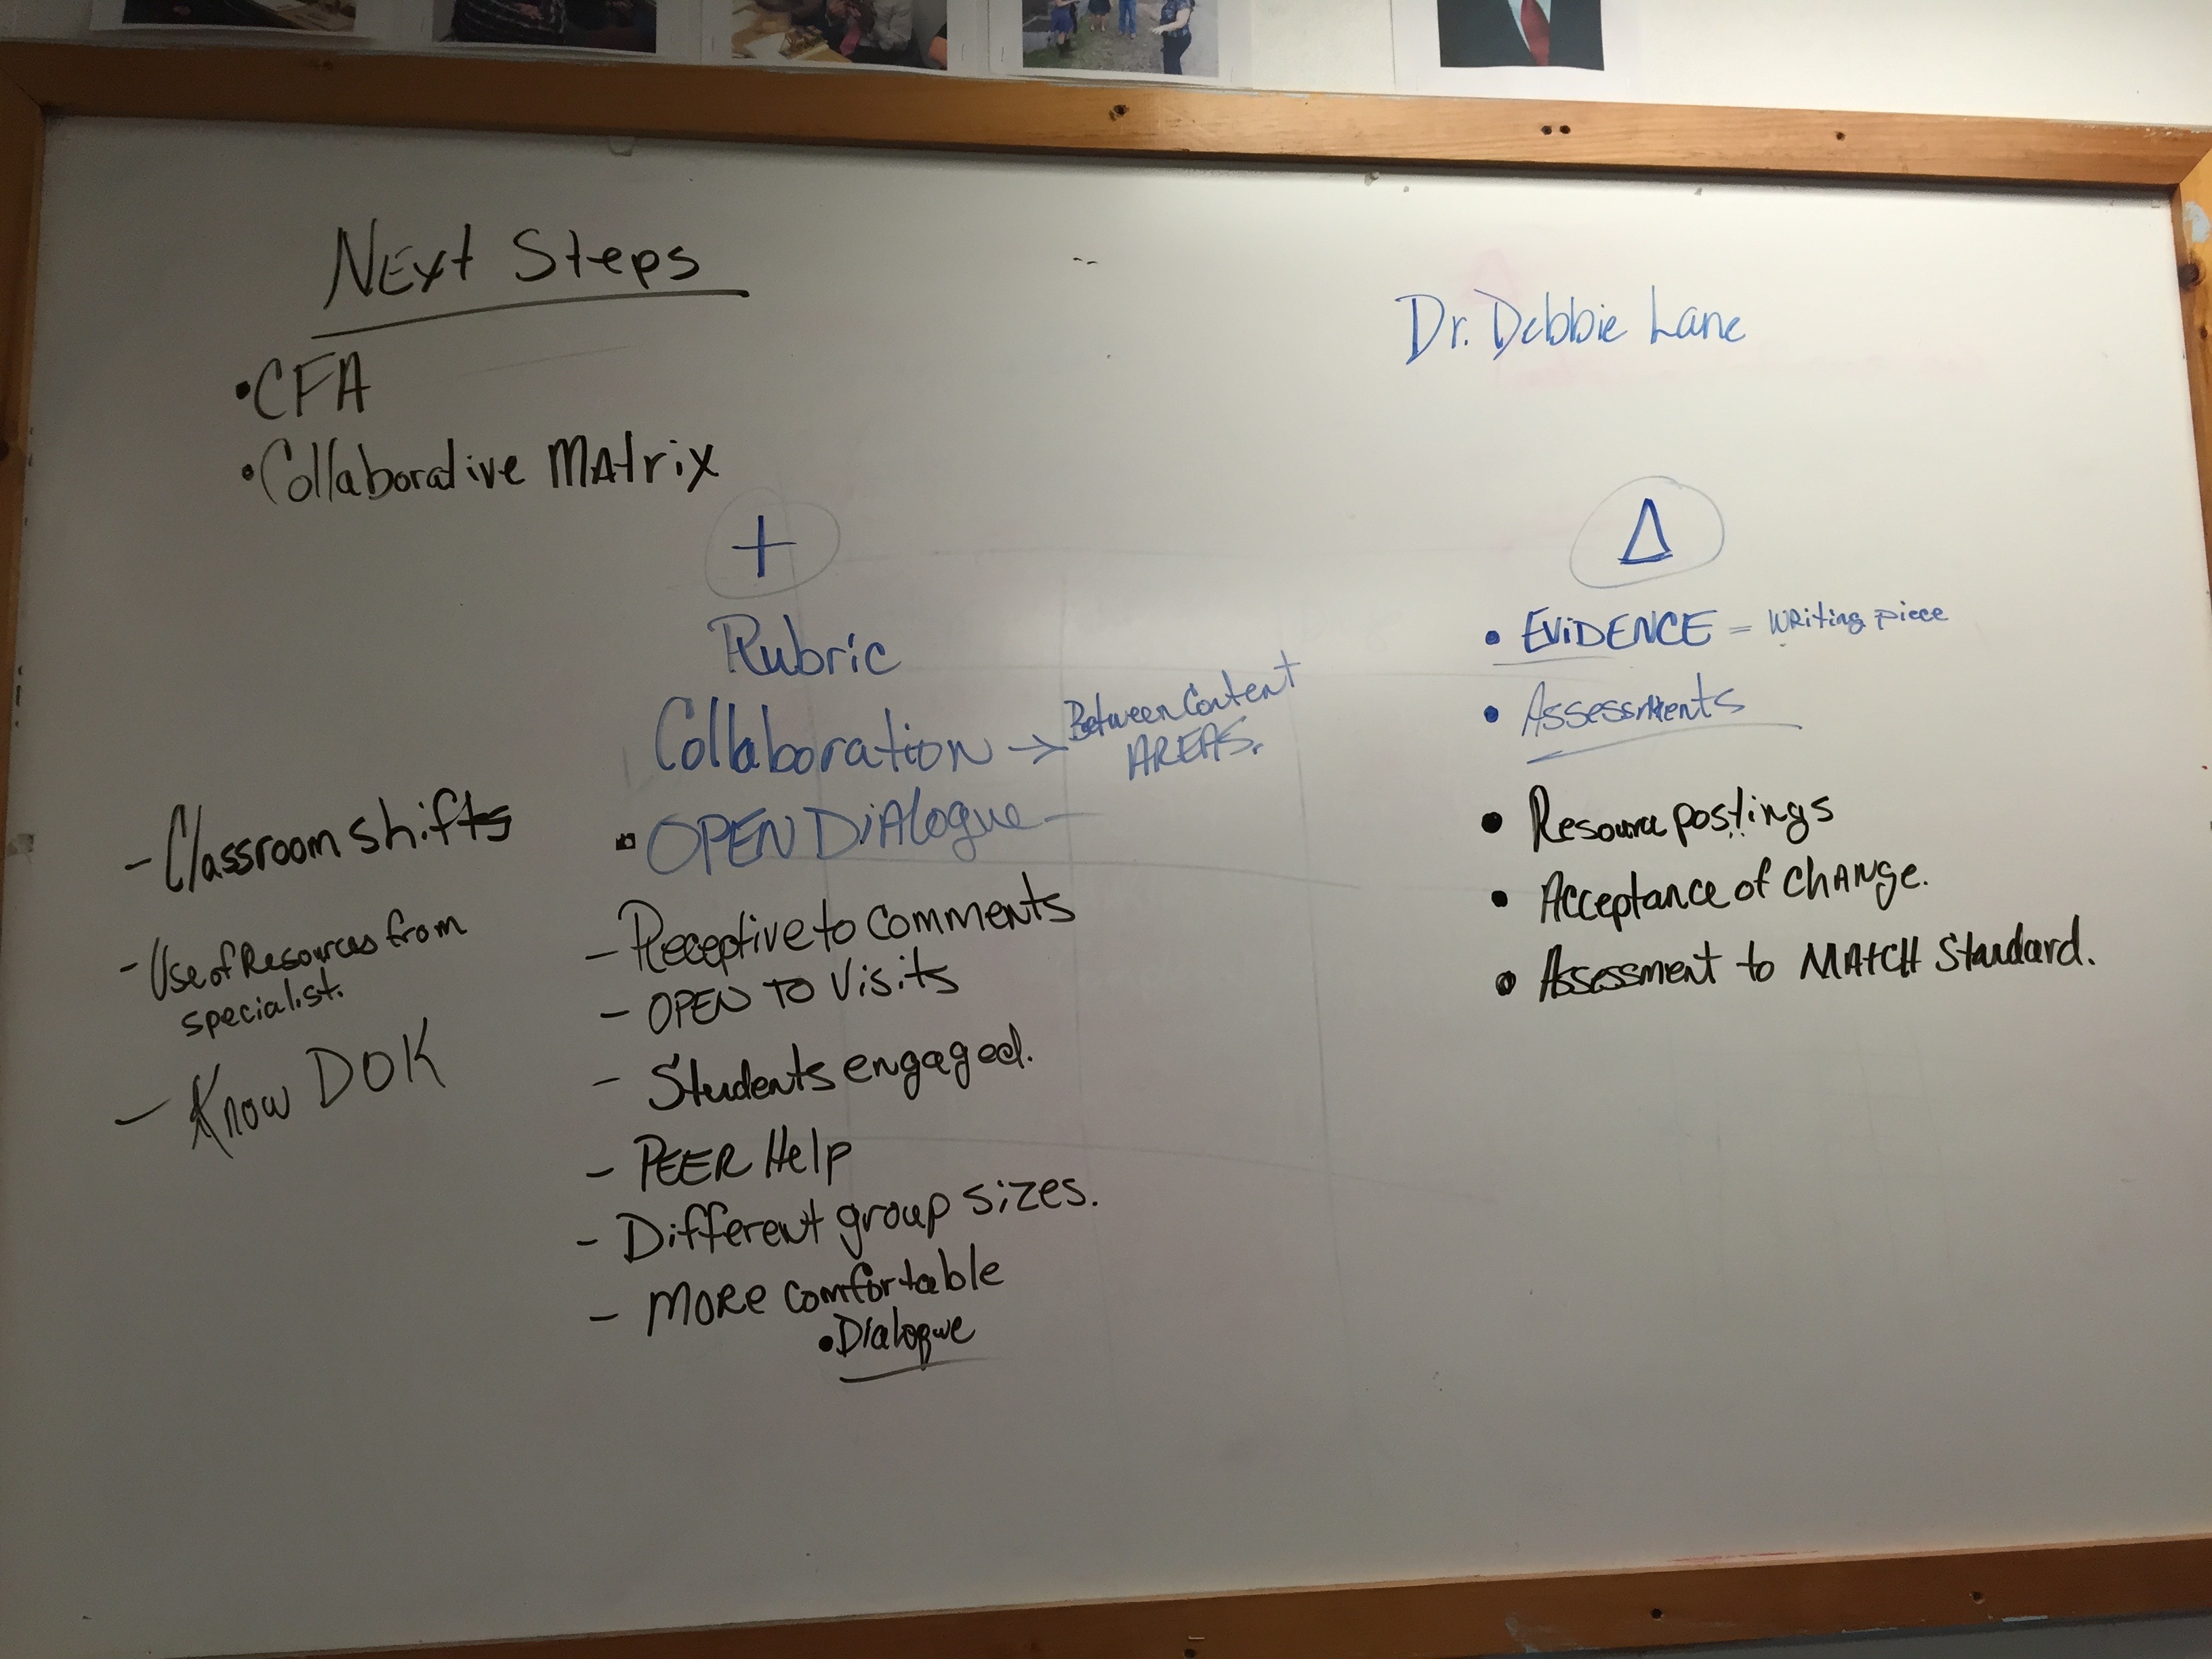 NEXt Steps
Dr. Debbie Lane
•CFA
•Collaborative MAtrix
+
Rubric
Collaboration → Between Content
AREAS.
▪ OPEN DiAlogue -
- Receptive to comments
- OPEN TO Visits
- Students engaged.
- PEER Help
- Different group sizes.
- MORE comfortable
•Dialogue
- Classroom shifts
- Use of Resources from
specialist.
- Know DOK
Δ
• EViDENCE = WRiting piece
• Assessments
• Resource postings
• Acceptance of ChANge.
• Assessment to MAtCH Standard.